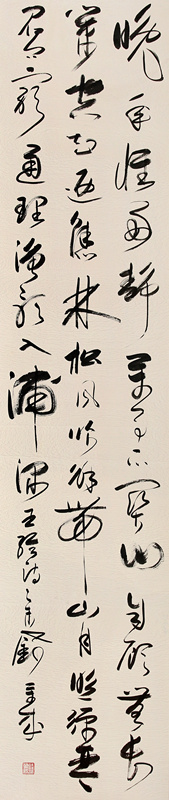 晚年惟好静萬事不関心自顧無長
策空知返舊林松風吹解帶山月照彈琴
君问窮通理漁歌入浦深王維詩